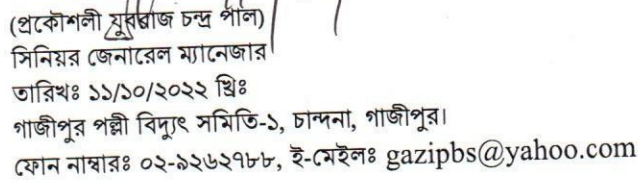 (প্রকৌশলী যুবরাজ চন্দ্র পাল)
সিনিয়র জেনারেল ম্যানেজার
তারিখঃ ১১/১০/২০২২ খ্রিঃ
গাজীপুর পল্লী বিদ্যুৎ সমিতি-১, চান্দনা, গাজীপুর।
ফোন নাম্বারঃ ০২-৯২৬২৭৮৮, ই-মেইলঃ gazipbs@yahoo.com